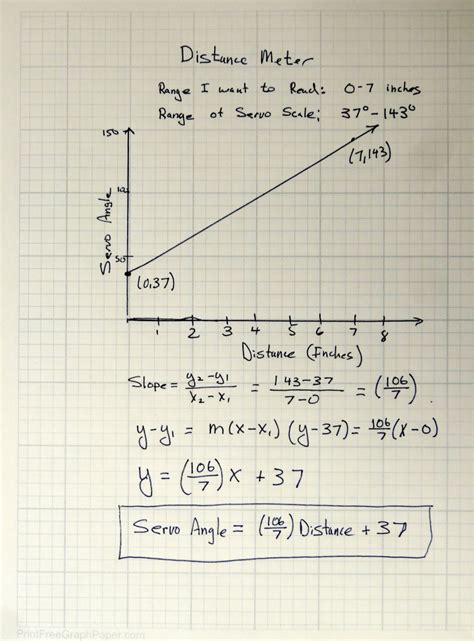 Distance Meter
Range I want to Read: 0-7 inches
Range of Servo Scale; 37° - 143°
150
(7,143)
Servo Angle
50
(0,37)
1 2 3 4 5 6 7 8
Distance (Inches)
Slope = y₂-y₁ / x₂-x₁ = 143-37 / 7-0 = (106/7)
y-y₁ = m(x-x₁) (y-37) = 106/7 (x-0)
y = (106/7)x + 37
Servo Angle = (106/7) Distance + 37
PrintFreeGraphPaper.com